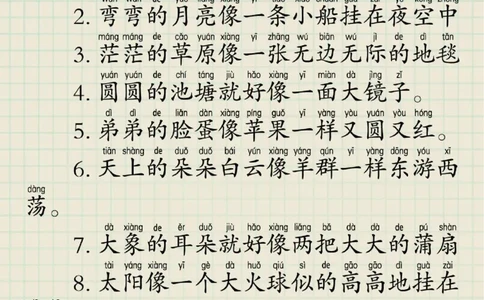 2. 弯弯的月亮像一条小船挂在夜空中
máng máng de cǎo yuán xiàng yī zhāng wú biān wú jì de dì tǎn
3. 茫茫的草原像一张无边无际的地毯
yuán yuán de chí táng jiù hǎo xiàng yī miàn dà jìng zǐ
4. 圆圆的池塘就好像一面大镜子。
dì dì de liǎn dàn xiàng píng guǒ yī yàng yòu yuán yòu hóng
5. 弟弟的脸蛋像苹果一样又圆又红。
tiān shàng de duǒ duǒ bái yún xiàng yáng qún yī yàng dōng yóu xī
6. 天上的朵朵白云像羊群一样东游西
dàng
荡。
dà xiàng de ěr duǒ jiù hǎo xiàng liǎng bǎ dà dà de pú shàn
7. 大象的耳朵就好像两把大大的蒲扇
tài yáng xiàng yī gè dà huǒ qiú sì de gāo gāo dì guà zài
8. 太阳像一个大火球似的高高地挂在